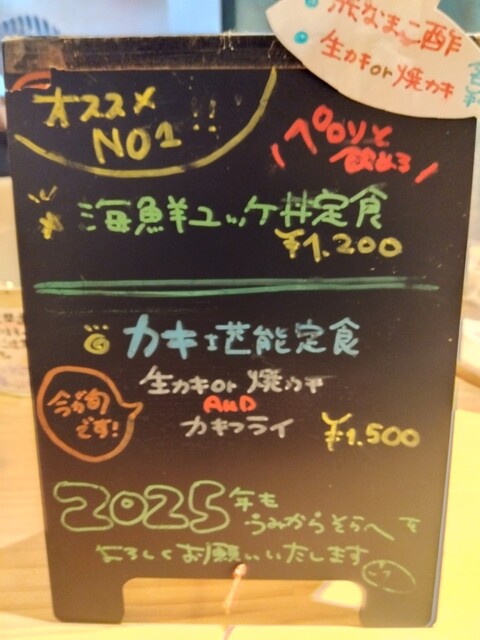 なまこ酢
・生カキor焼カキ
オススメ
NO1!!
ペロリと
飲める
海鮮ユッケ丼定食
¥1,200
カキ堪能定食
生カキor焼カキ
AND
カキフライ
今が旬
です!
¥1,500
2025年も
うみからそらへを
よろしくお願いいたします